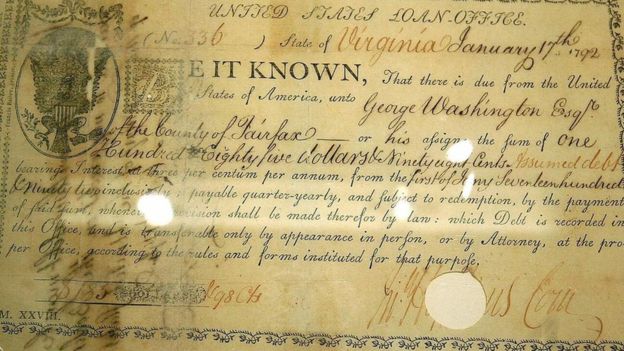 UNITED STATES LOAN-OFFICE.
(No. 336 ) State of Virginia January 17th 1792
BE IT KNOWN, That there is due from the United
States of America, unto George Washington Esqr.
of the County of Fairfax — or his assigns the sum of one
Hundred Eighty five dollars & Ninety eight Cents. Assumed debt
bearing Interest at three per centum per annum, from the first of Jany Seventeen hundred
& Ninety two inclusively; payable quarter-yearly, and subject to redemption, by the payment
of said sum, whenever provision shall be made therefor by law: which Debt is recorded in
this Office, and is transferable only by appearance in person, or by Attorney, at the pro
per Office, according to the rules and forms instituted for that purpose.
185 98 Cts
M. XXVIII.